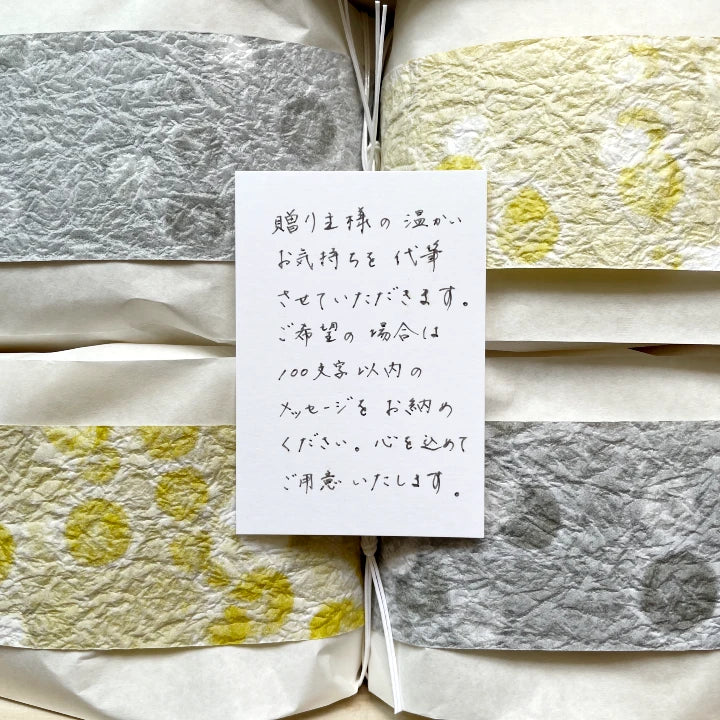 贈り主様の温かい
お気持ちを代筆
させていただきます。
ご希望の場合は
100文字以内の
メッセージをお納め
ください。心を込めて
ご用意いたします。